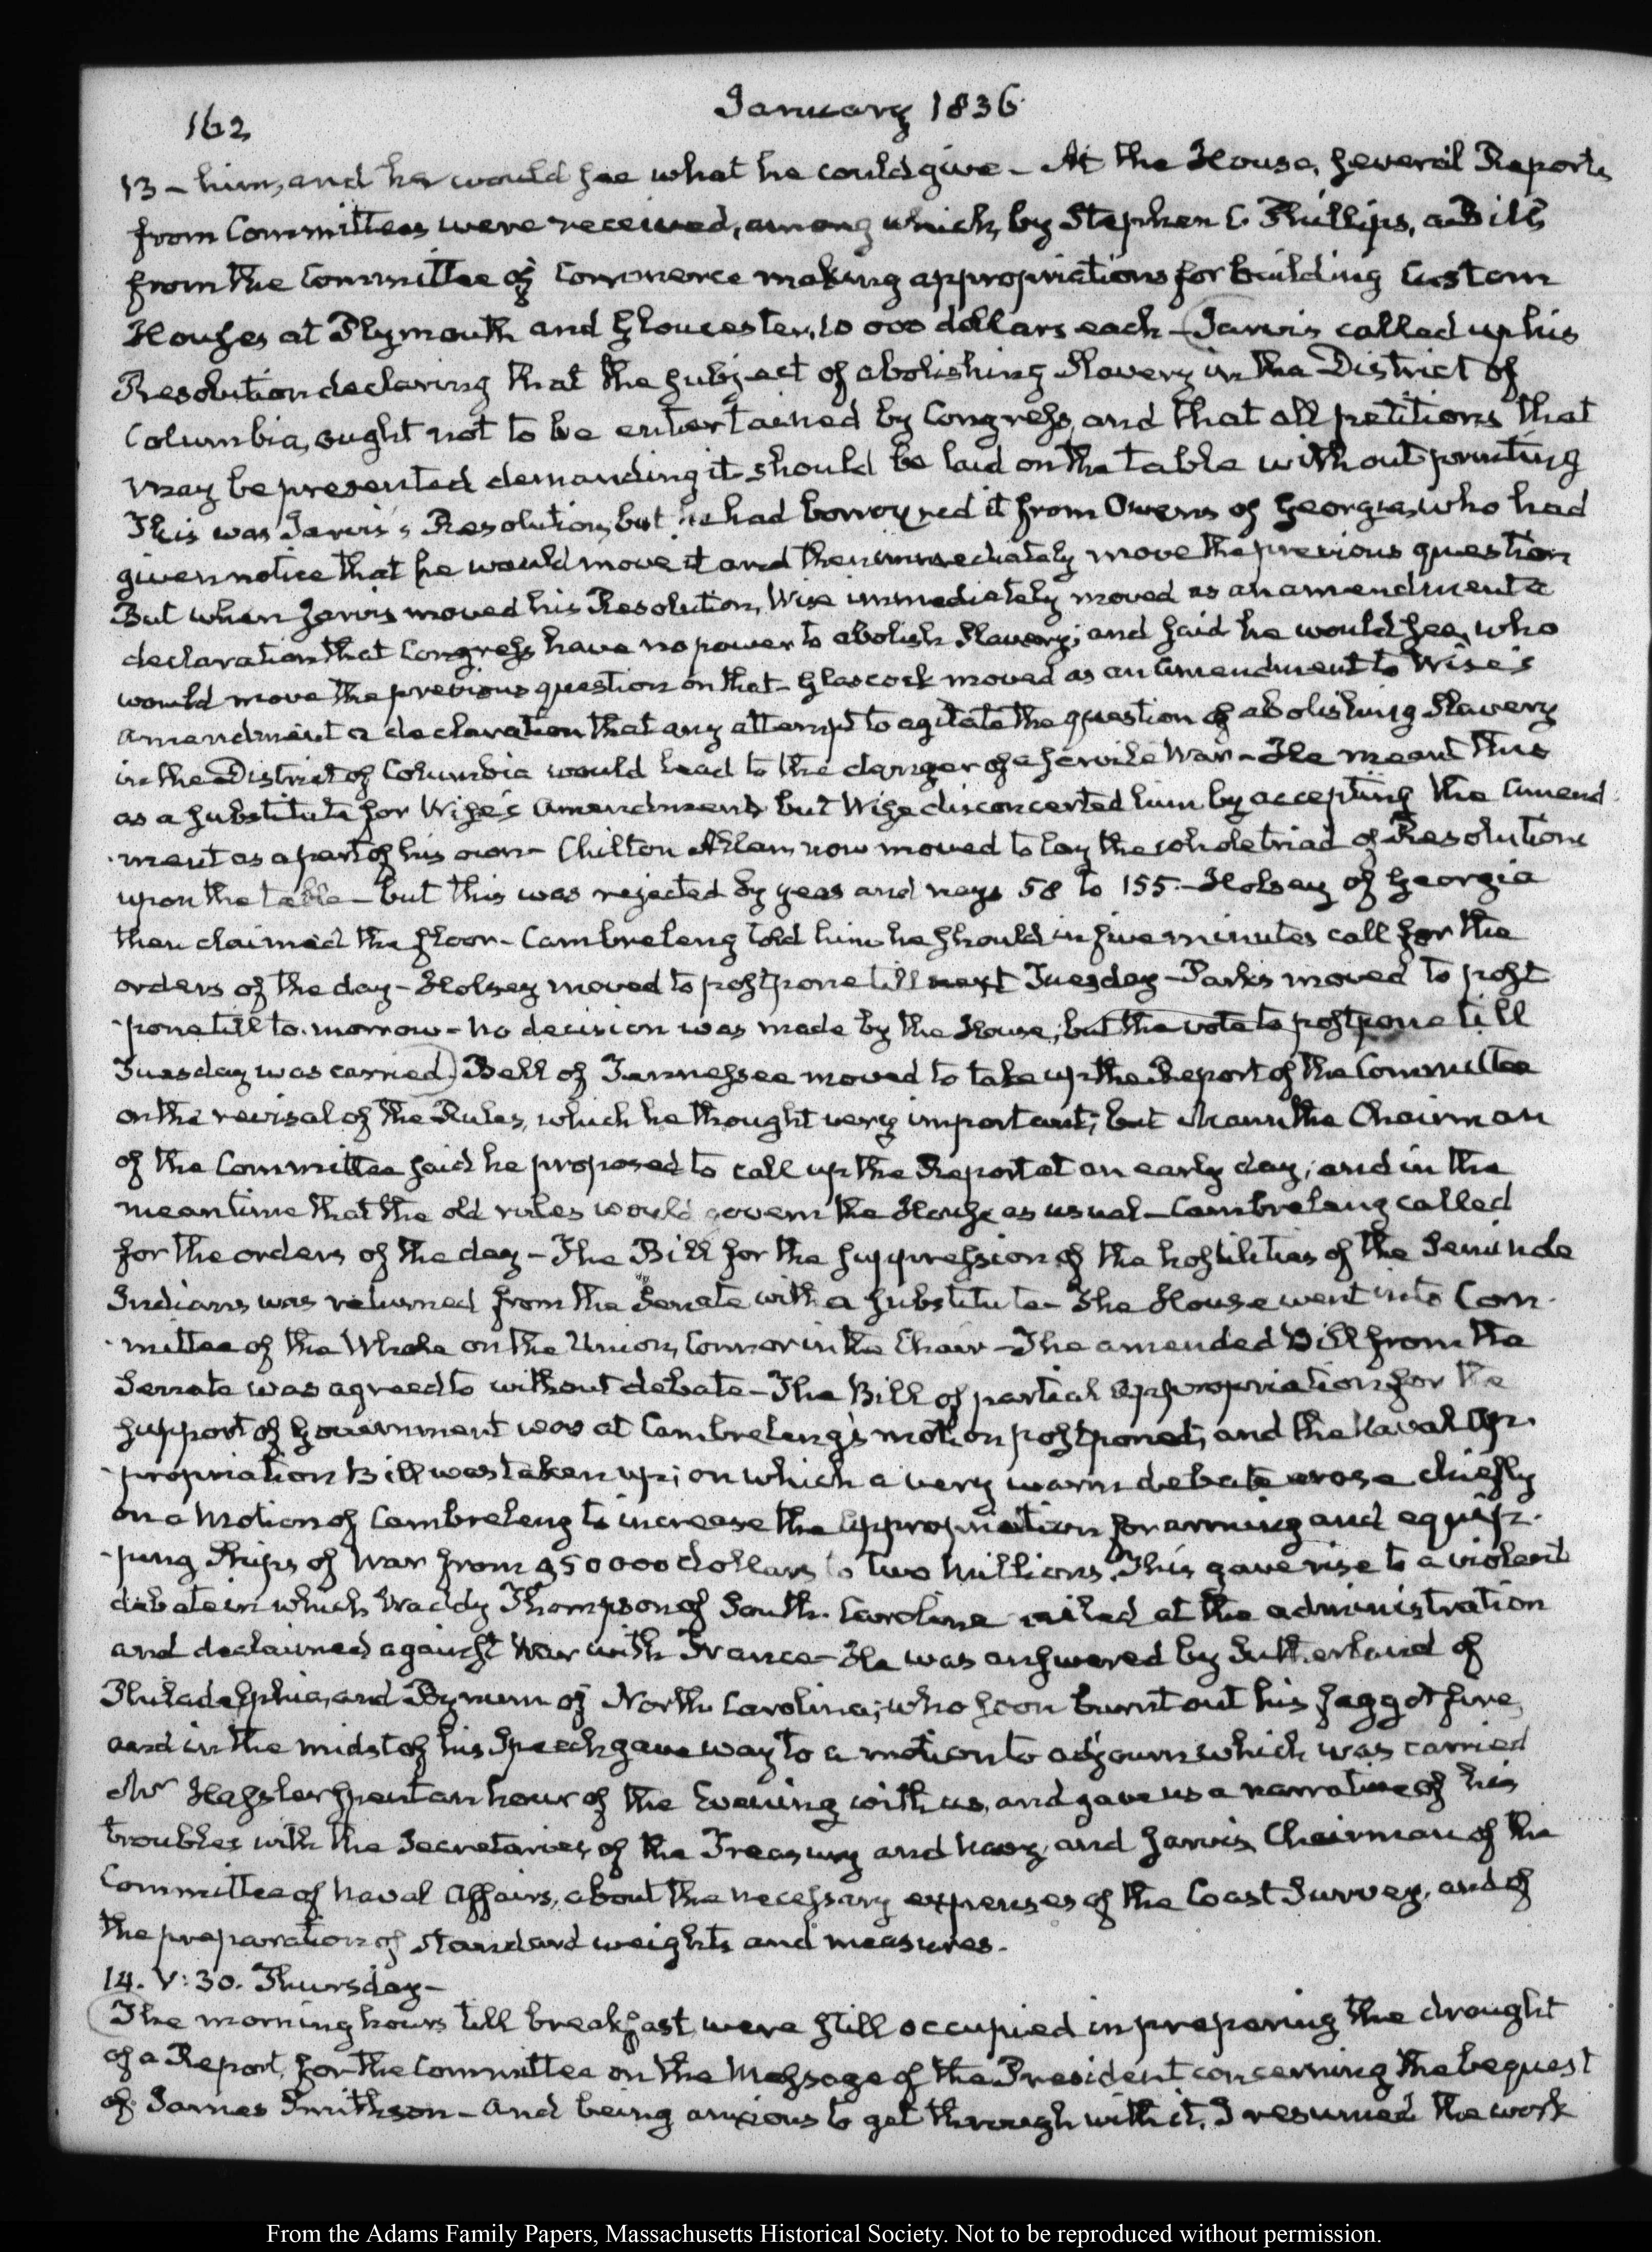 162
January 1836
13 – him, and he would see what he could give – At the House, several Reports
from Committees were received, among which, by Stephen C Phillips, a Bill
from the Committee of Commerce making appropriations for building Custom
Houses at Plymouth and Gloucester, 10 000 dollars each – Jarvis called up his
Resolution declaring that the subject of abolishing Slavery in the District of
Columbia, ought not to be entertained by Congress, and that all petitions that
may be presented demanding it should be laid on the table without printing
This was Jarvis's Resolution, but he had borrowed it from Owens of Georgia, who had
given notice that he would move it and then immediately move the previous question
But when Jarvis moved his Resolution, Wise immediately moved as an amendment a
declaration that Congress have no power to abolish Slavery; and said he would see, who
would move the previous question on that – Glascock moved as an amendment to Wise's
amendment a declaration that any attempt to agitate the question of abolishing Slavery
in the District of Columbia would lead to the danger of a servile War – He meant this
as a substitute for Wise's amendment, but Wise disconcerted him by accepting the amend
-ment as a part of his own – Chilton Allan now moved to lay the whole triad of Resolutions
upon the table – but this was rejected by yeas and nays 58 to 155. – Holsey of Georgia
then claimed the floor – Cambreleng told him he should in five minutes call for the
orders of the day – Holsey moved to postpone till next Tuesday – Parks moved to post
-pone till to-morrow – no decision was made by the House; but the vote to postpone till
Tuesday was carried) Bell of Tennessee moved to take up the Report of the Committee
on the revisal of the Rules, which he thought very important; but Mann the Chairman
of the Committee said he proposed to call up the Report at an early day, and in the
meantime that the old rules would govern the House as usual – Cambreleng called
for the orders of the day – The Bill for the suppression of the hostilities of the Seminole
Indians was returned from the Senate with a substitute – The House went into Com-
-mittee of the Whole on the Union, Connor in the Chair – The amended Bill from the
Senate was agreed to without debate – The Bill of partial appropriation for the
support of Government was at Cambreleng's motion postponed, and the Naval Ap-
-propriation Bill was taken up; on which a very warm debate arose chiefly
on a motion of Cambreleng to increase the appropriation for arming and equip-
-ping Ships of War from 950 000 dollars to two Millions. This gave rise to a violent
debate in which Waddy Thompson of South-Carolina railed at the administration
and declaimed against War with France – He was answered by Sutherland of
Philadelphia, and Bynum of North Carolina; who soon burnt out his faggot fire,
and in the midst of his Speech gave way to a motion to adjourn which was carried
Mr Hassler spent an hour of the Evening with us, and gave us a narrative of his
troubles with the Secretaries, of the Treasury and Navy, and Jarvis, Chairman of the
Committee of Naval Affairs, about the necessary expenses of the Coast Survey, and of
the preparation of standard weights and measures.
14. V: 30. Thursday –
The morning hours till breakfast, were still occupied in preparing the draught
of a Report, for the Committee on the Message of the President concerning the bequest
of James Smithson – and being anxious to get through with it, I resumed the work
From the Adams Family Papers, Massachusetts Historical Society. Not to be reproduced without permission.